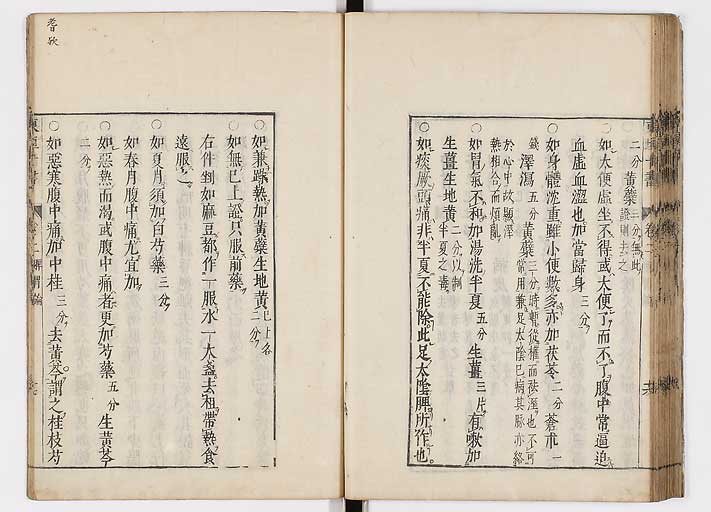 二分 黄蘗 三分無此證則去之
○如大便虛坐不得或大便了而不了腹中常逼迫
血虛血澀也加當歸身 三分
○如身體沈重雖小便數多亦加茯苓 二分 蒼朮 一
錢 澤瀉 五分 黄蘗 三分時暫從權而祛溼也不可常用兼足太陰已病其脉亦絡
於心中故顯溼熱相合而煩亂
○如胃氣不和加湯洗半夏 五分 生薑 三片 有嗽加
生薑生地黄 二分以制半夏之毒
○如痰厥頭痛非半夏不能除此足太陰脾所作也
○如兼躁熱加黄蘗生地黄 已上各二分
○如無已上證只服前藥
右件剉如麻豆都作一服水一大盞去粗帶熱食
遠服之
○如夏月須加白芍藥 三分
○如春月腹中痛尤宜加
○如惡熱而渴或腹中痛者更加芍藥 五分 生黄芩
二分
○如惡寒腹中痛加中桂 三分 去黄芩謂之桂枝芍